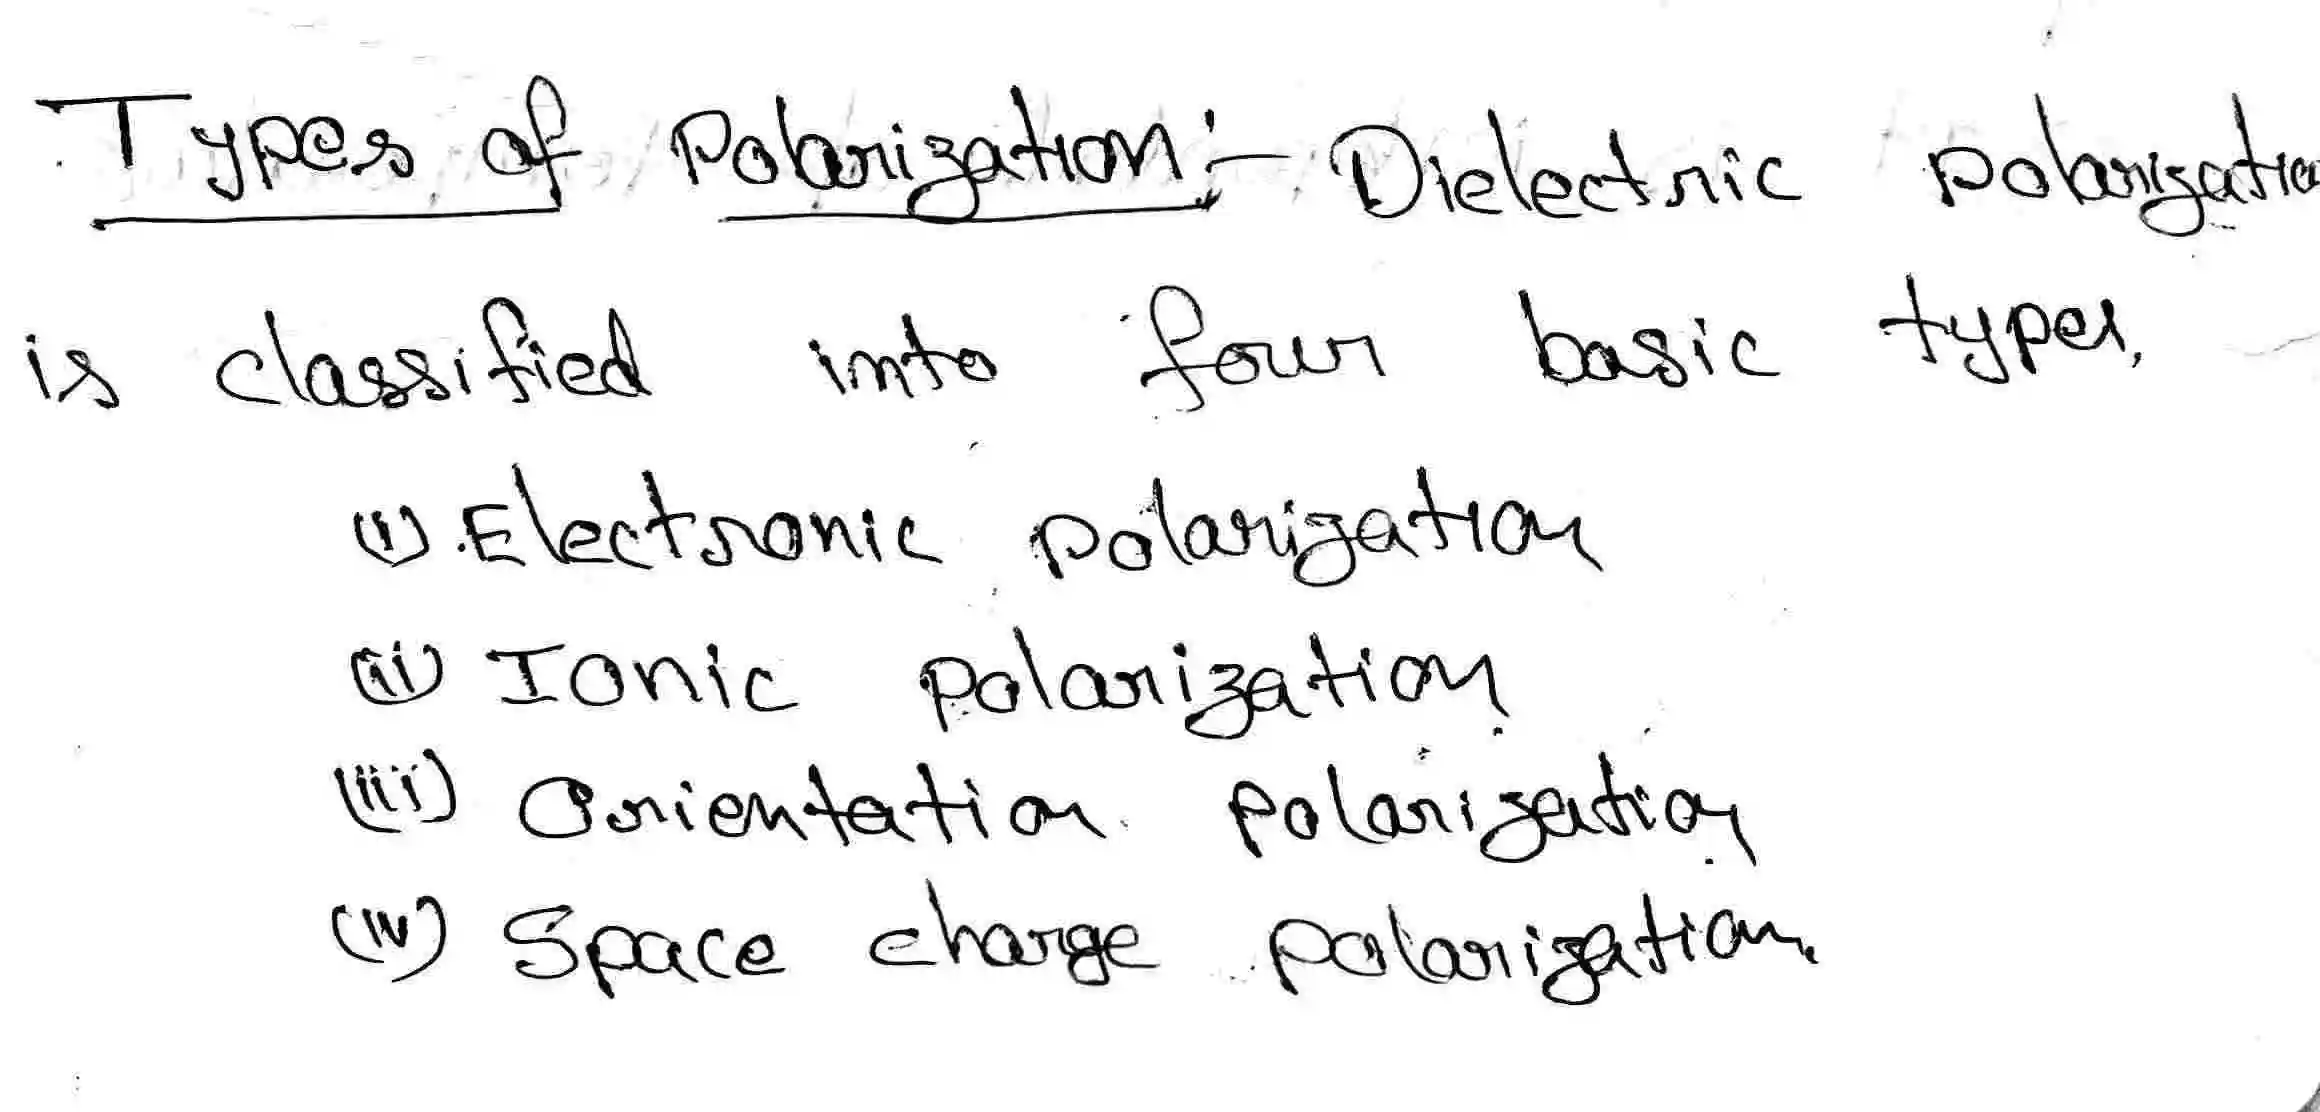 Types of Polarization:- Dielectric polarization
is classified into four basic types,
(i) Electronic polarization
(ii) Ionic polarization
(iii) Orientation polarization
(iv) Space charge polarization.